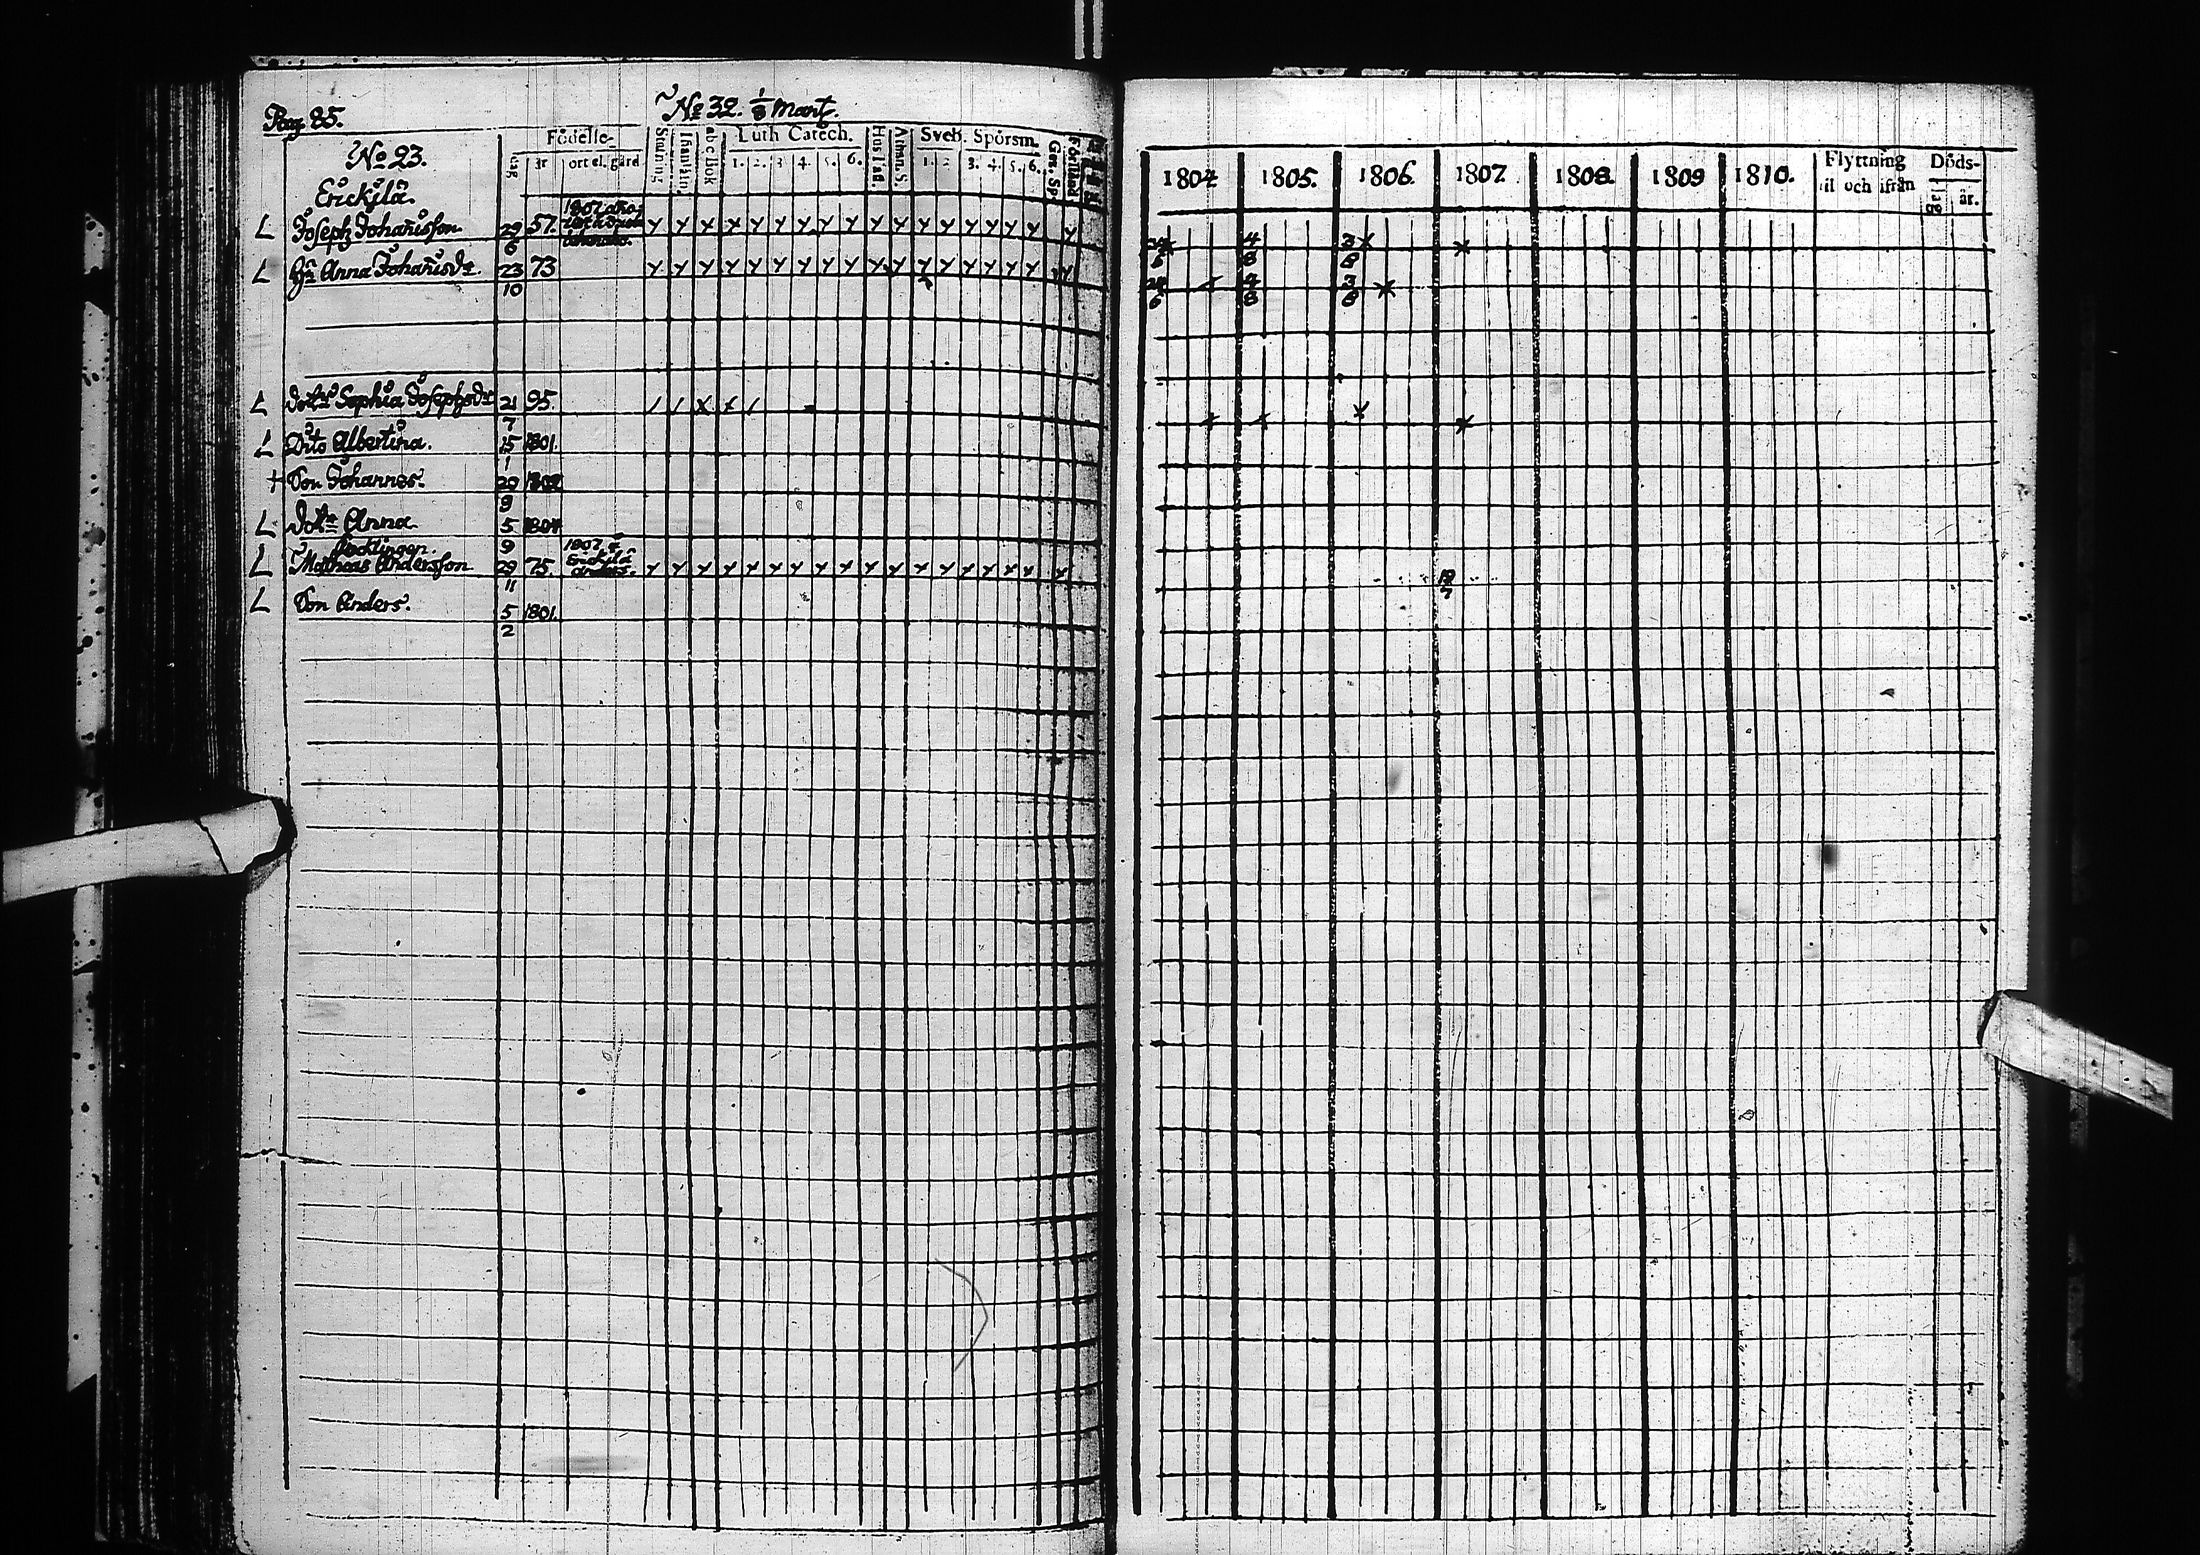 Pag 85.
No 32. 1/8 Mant.
Födelse-
dag år ort el. gård
Luth Catech.
1. 2. 3 4. 5. 6.
abc bok
Hustafl.
Athan. S.
Sveb. Spörsm.
1. 2 3. 4. 5. 6.
Gen. Sp.
Förstånd
No 23.
Erickilä.
L Joseph Johansson 29/6 57. 1807
L Hu Anna Johansdr. 23/10 73
L dotr Sophia Josephsdr 21/7 95.
L Dito Albertina. 15/1 1801.
† Son Johannes. 20/9 1802
L Dotr Anna 5/9 1804
L Mathias Andersson 29/11 75. 1807. f. Erickilä anders.
L Son Anders. 5/2 1801.
1804 1805. 1806. 1807 1808. 1809 1810.
Flyttning
til och ifrån
Döds-
dag år.
4/8 3/8
4/8 3/8
19/7